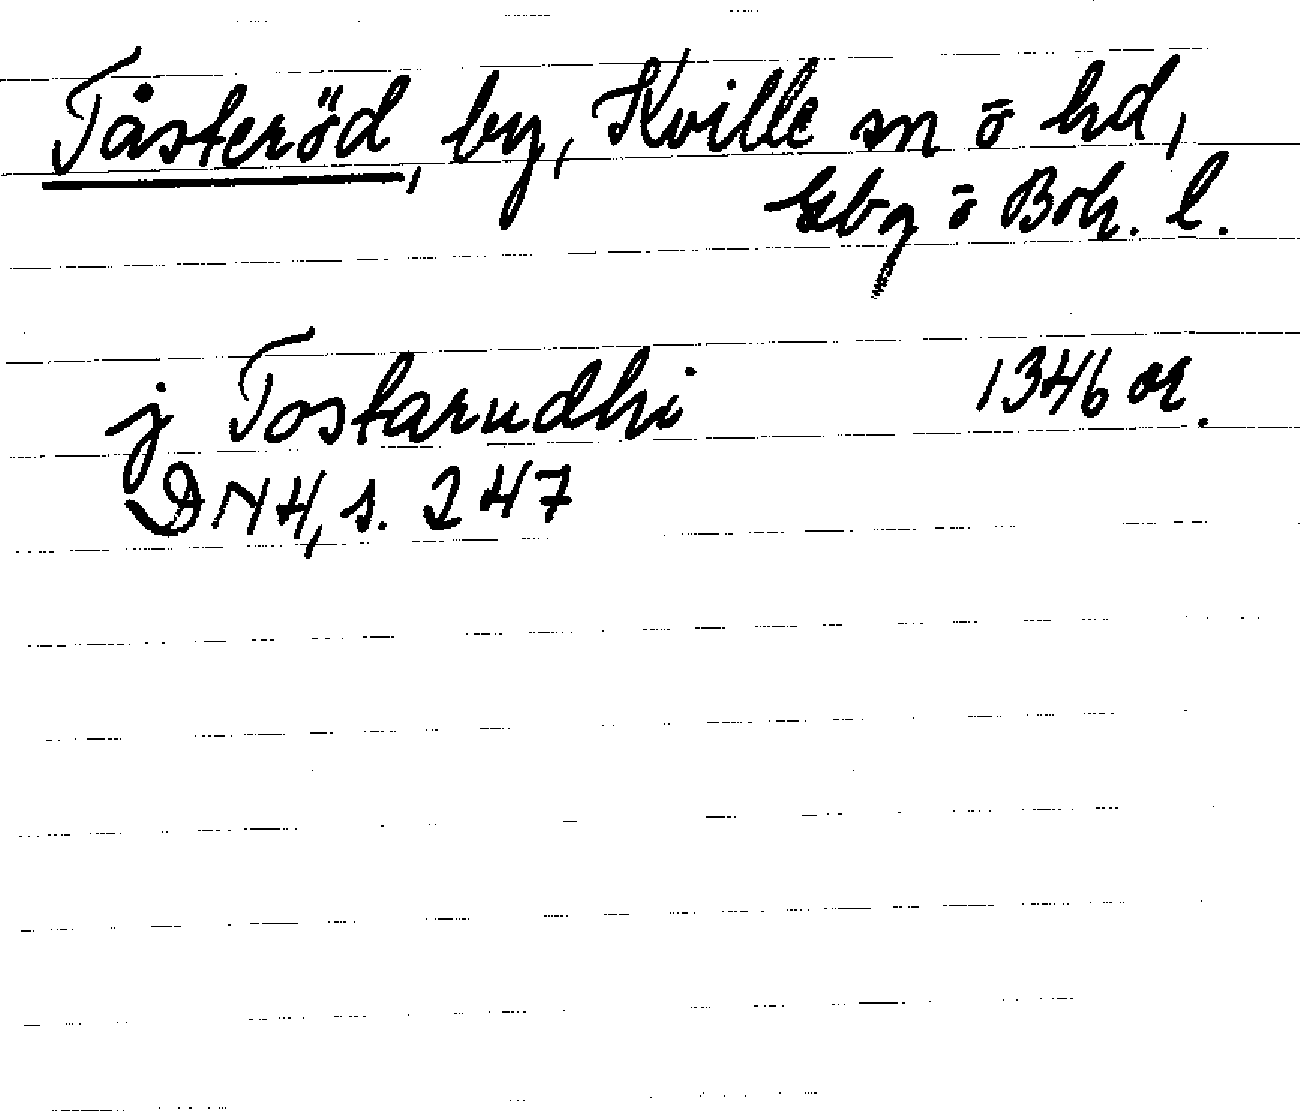 Tåsteröd, by, Kville sn o hd,
Gbg o Boh. l.
j Tostarudhi 1346 or.
DN 4, s. 247